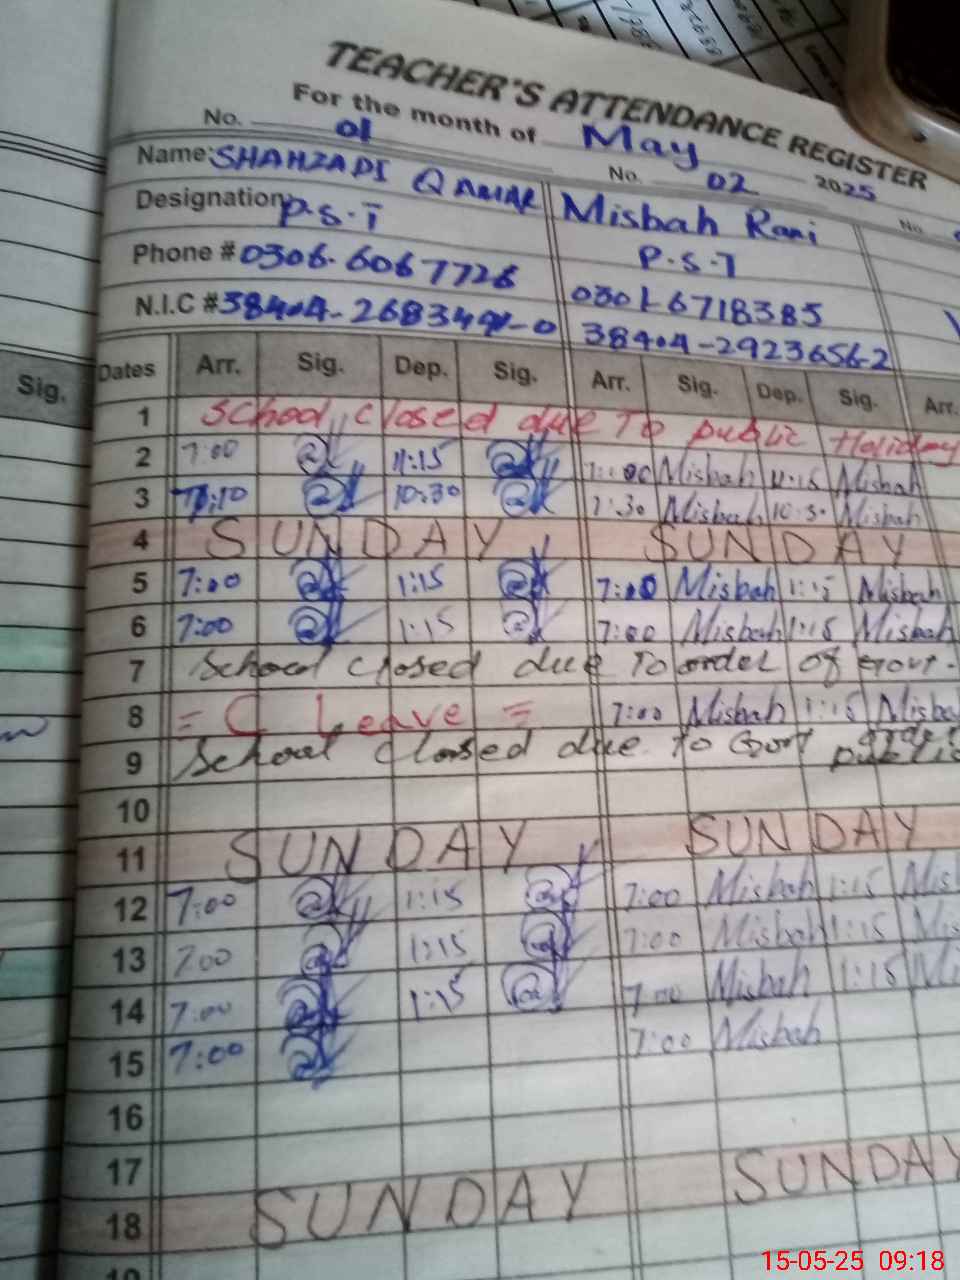 TEACHER'S ATTENDANCE REGISTER
For the month of May 2025
No. 01 No. 02 No.
Name: SHAHZADI QAMAR Misbah Rani
Designation P.S.T P.S.T
Phone # 0306-6067726 0301-6718385
N.I.C # 38404-2923656-2
Sig. Dates Arr. Sig. Dep. Sig. Arr. Sig. Dep. Sig. Arr.
1 School closed due To public Holiday
2 7:00 11:15 Misbah 11:15 Misbah
3 10:30 7:30 Misbah 10:30 Misbah
4 SUNDAY SUNDAY
5 7:00 1:15 7:00 Misbah 1:15 Misbah
6 7:00 1:15 7:00 Misbah 1:15 Misbah
7 School closed due To order of Govt.
8 = C Leave = 7:00 Misbah 1:15 Misba
9 School closed due to Govt order public
10
11 SUNDAY SUNDAY
12 7:00 1:15 7:00 Misbah 1:15 Misb
13 7:00 1:15 7:00 Misbah 1:15 Mis
14 7:00 1:15 7:00 Misbah 1:15 Mi
15 7:00 7:00 Misbah
16
17
18 SUNDAY SUNDAY
19
15-05-25 09:18